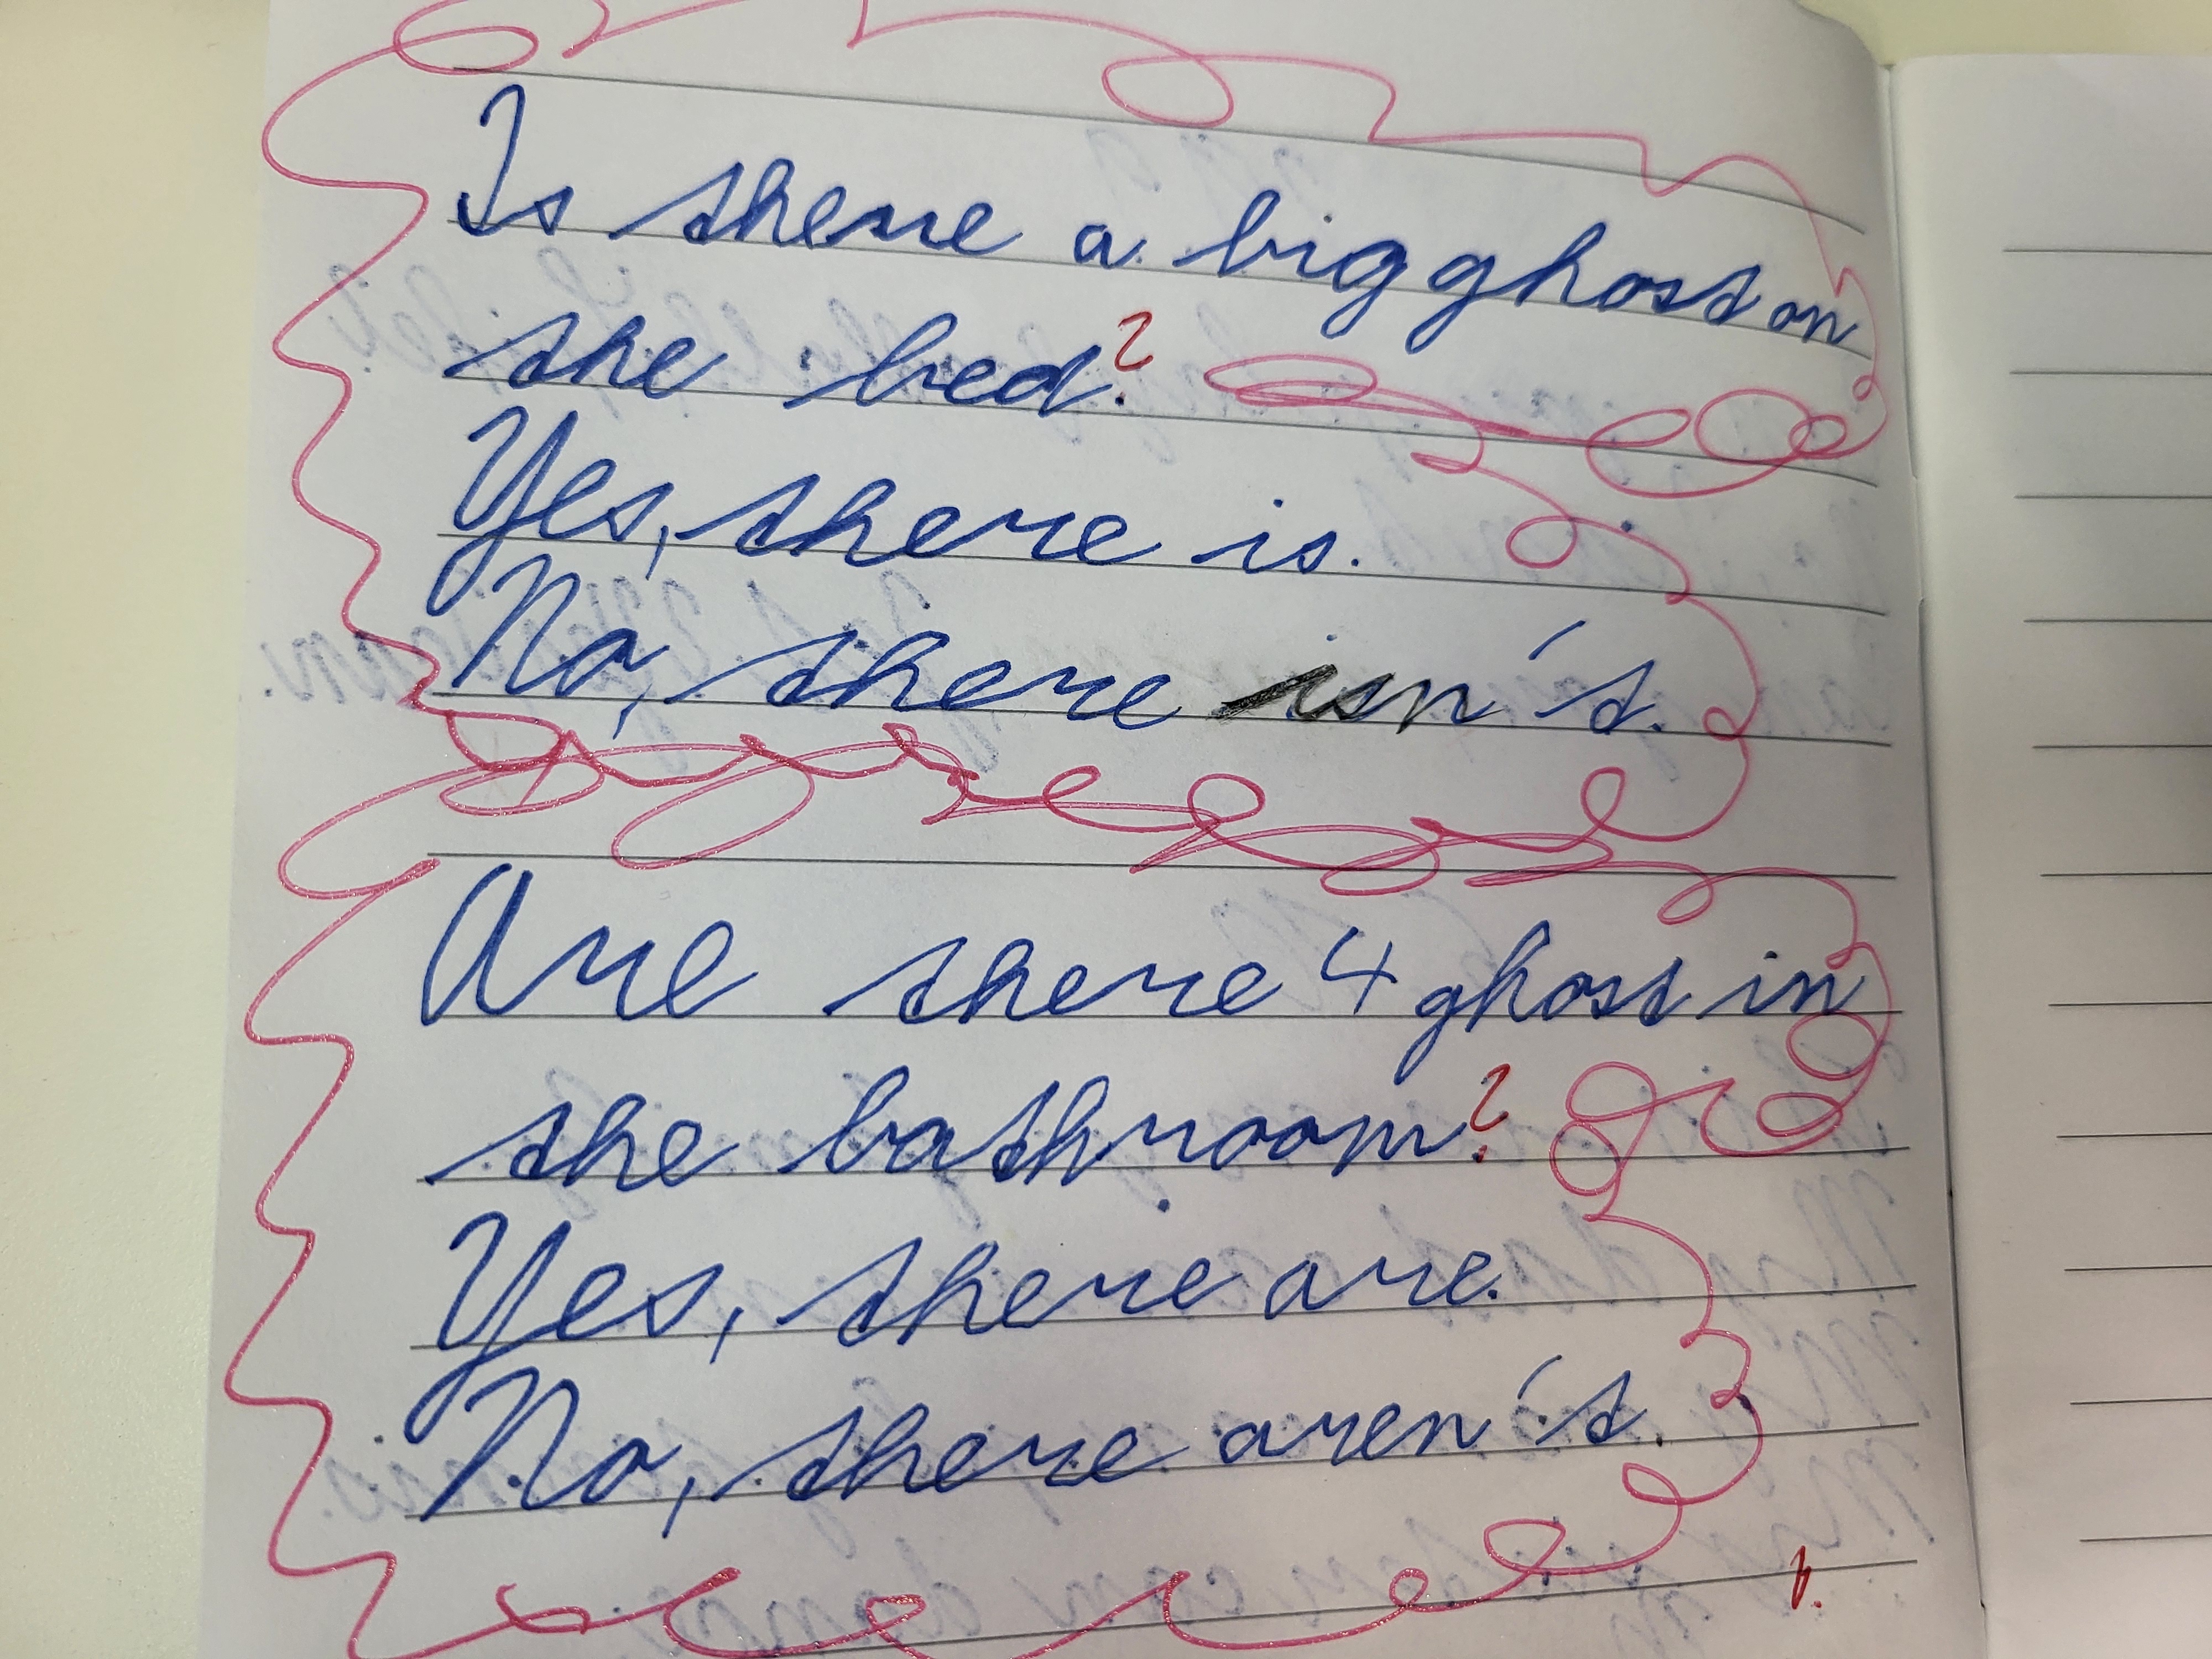 Is there a big ghost on
the bed?
Yes, there is.
No, there isn't.
Are there 4 ghost in
the bathroom?
Yes, there are.
No, there aren't.